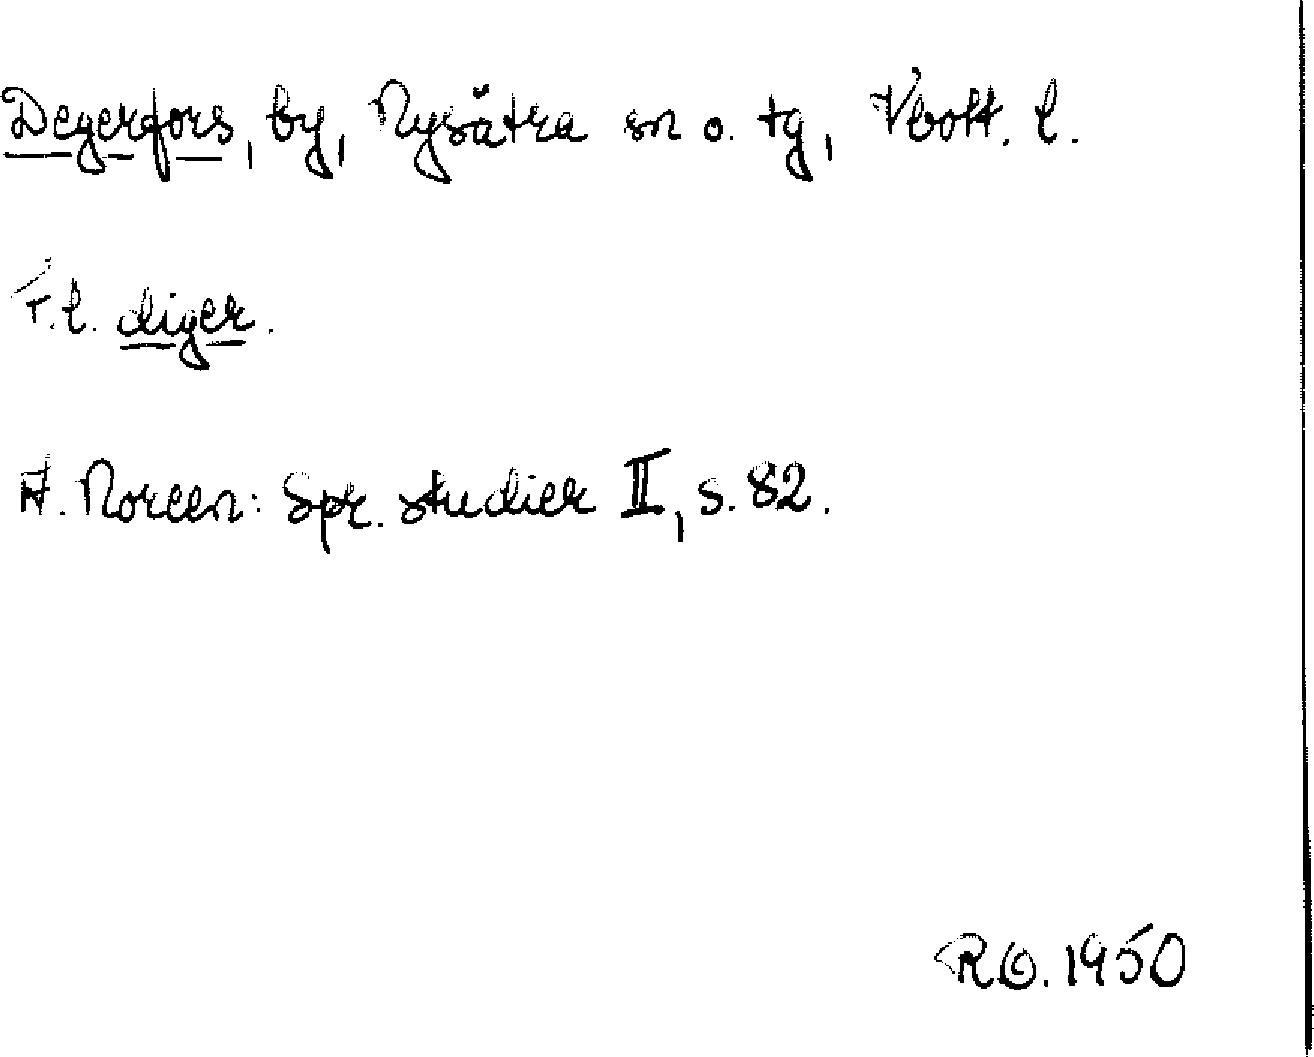 Degerfors, by, Nysätra sn o. tg, Vbott. l.
F.l. diger.
A. Noreen: Spr. studier II, s. 82.
R.O. 1950